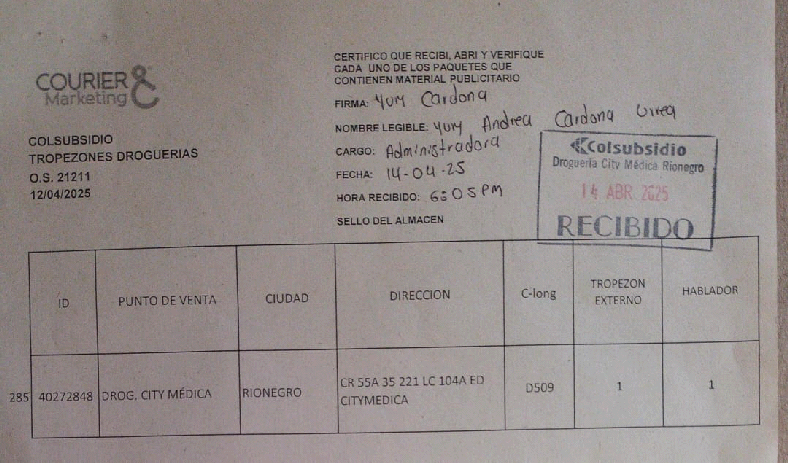 COURIER &
Marketing
COLSUBSIDIO
TROPEZONES DROGUERIAS
O.S. 21211
12/04/2025
CERTIFICO QUE RECIBI, ABRI Y VERIFIQUE
CADA UNO DE LOS PAQUETES QUE
CONTIENEN MATERIAL PUBLICITARIO
FIRMA: Yury Cardona
NOMBRE LEGIBLE: Yury Andrea Cardona Urrea
CARGO: Administradora
FECHA: 14-04-25
HORA RECIBIDO: 6:05 PM
SELLO DEL ALMACEN
Colsubsidio
Droguería City Médica Rionegro
14 ABR. 2025
RECIBIDO
ID PUNTO DE VENTA CIUDAD DIRECCION C-long TROPEZON EXTERNO HABLADOR
285 40272848 DROG. CITY MÉDICA RIONEGRO CR 55A 35 221 LC 104A ED CITYMEDICA D509 1 1